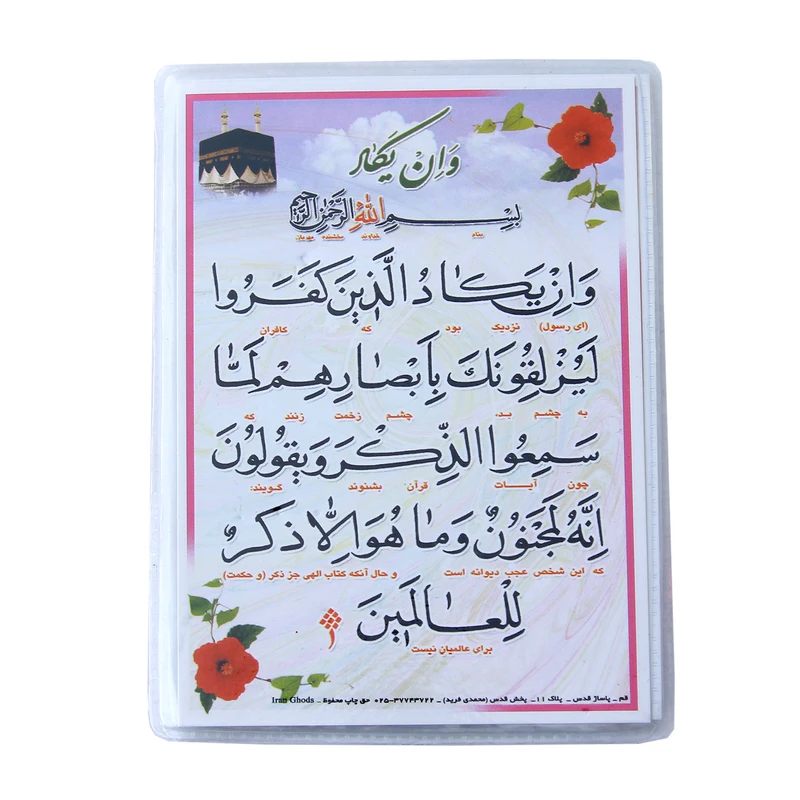 وَاِنْ يَكَادُ
بِسْمِ اللّٰهِ الرَّحْمٰنِ الرَّحیمِ
بنام خداوند بخشنده مهربان
وَاِنْ يَكَادُ الَّذينَ كَفَرُوا
(ای رسول) نزدیک بود که کافران
لَيُزْلِقُونَكَ بِاَبْصَارِهِمْ لَمَّا
به چشم بد، چشم زخمت زنند که
سَمِعُوا الذِّكْرَ وَيَقُولُونَ
چون آیات قرآن بشنوند گویند:
اِنَّهُ لَمَجْنُونٌ وَمَا هُوَ اِلَّا ذِكْرٌ
که این شخص عجب دیوانه است و حال آنکه کتاب الهی جز ذکر (و حکمت)
لِلْعَالَمِينَ
برای عالمیان نیست
قم ـ پاساژ قدس ـ پلاک ۱۱ـ پخش قدس (محمدی فرید) ـ ۳۷۷۴۳۷۲۲-۰۲۵ حق چاپ محفوظ ـ Iran Ghods